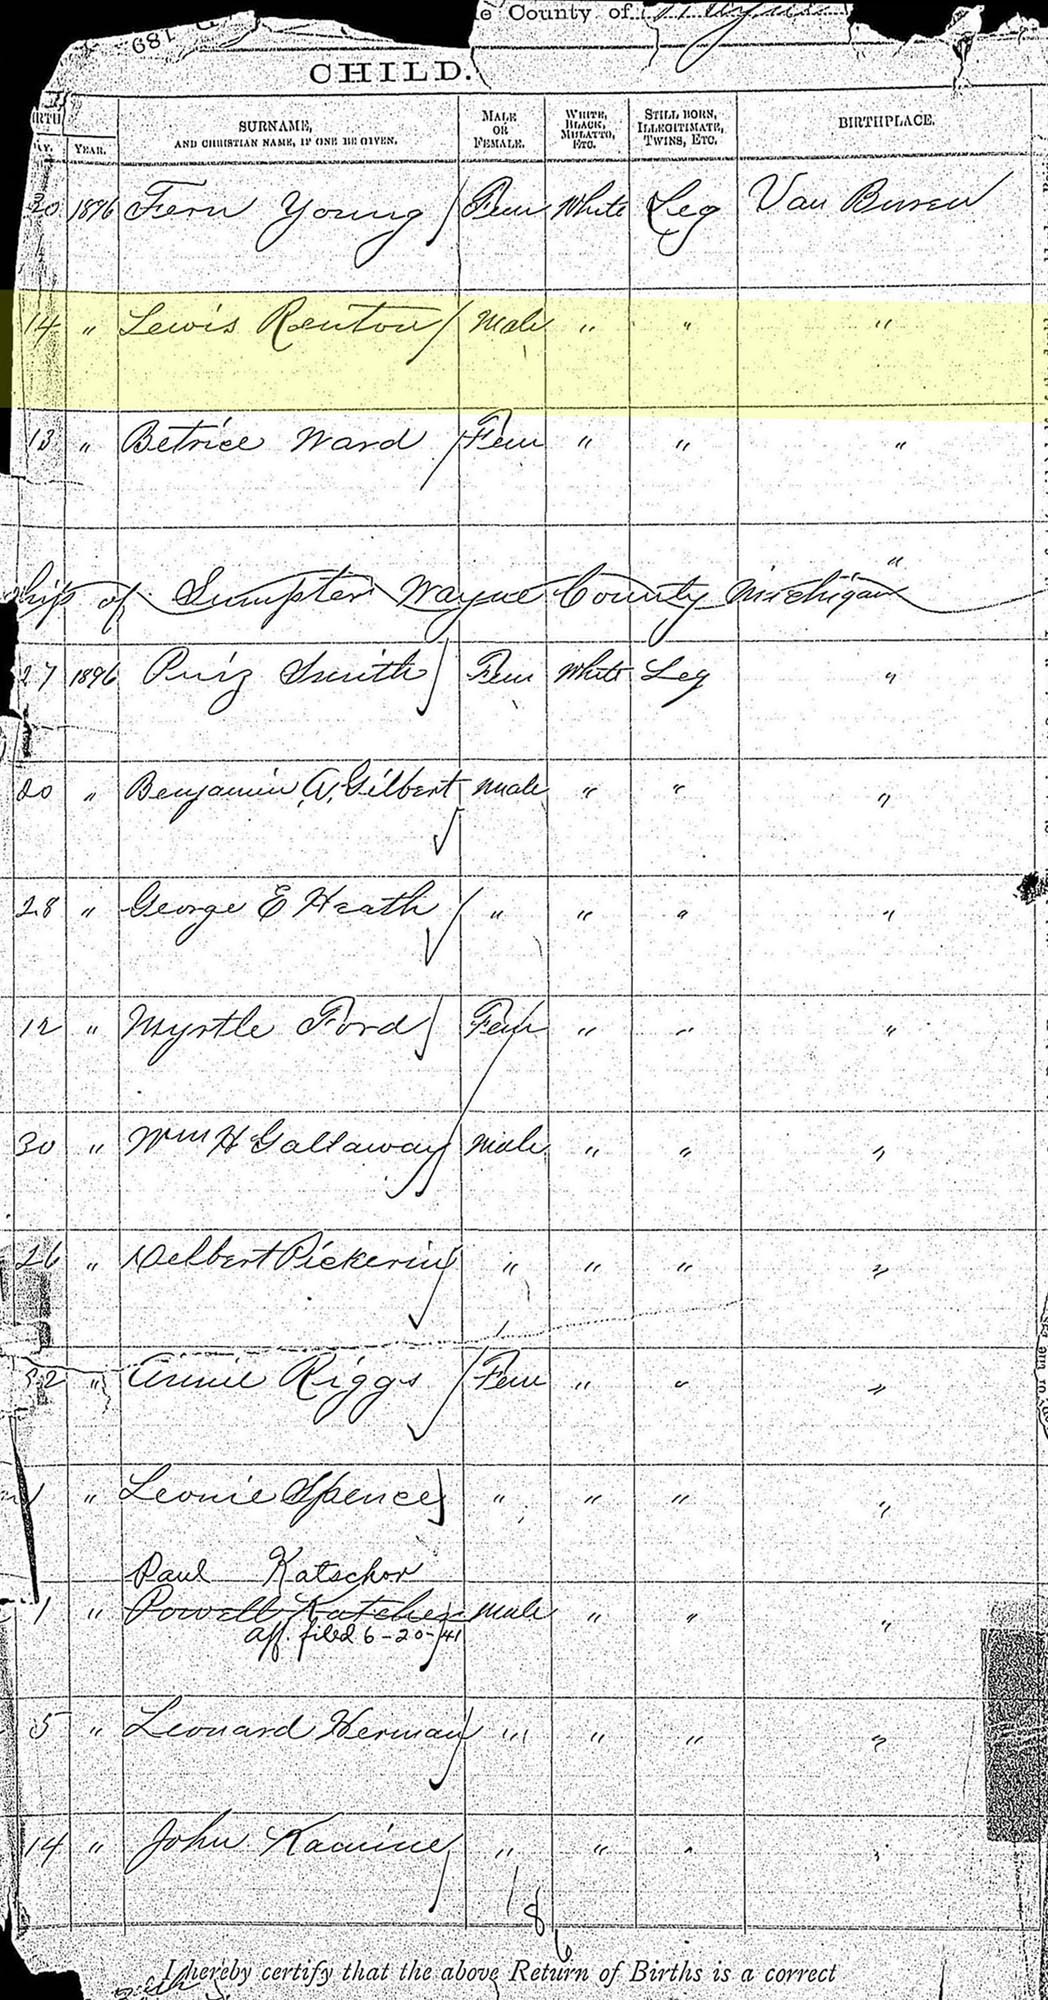 e County of
CHILD.
YEAR. SURNAME, AND CHRISTIAN NAME, IF ONE BE GIVEN. MALE OR FEMALE. WHITE, BLACK, MULATTO, ETC. STILL BORN, ILLEGITIMATE, TWINS, ETC. BIRTHPLACE.
20 1896 Fern Young Fem White Leg Van Buren
14 " Lewis Renton Male " " "
13 " Betrice Ward Fem " " "
"
ship of Sumpter Wayne County Michigan
27 1896 Smith Fem White Leg "
20 " Benjamin A. Gilbert Male " " "
28 " George E Heath " " " "
12 " Myrtle Ford Fem " " "
30 " Wm H Gallaway Male " " "
26 " Delbert Pickering " " " "
22 " Annie Riggs Fem " " "
1 " Leonie Spence " " " "
Paul Katschor
1 " Powell Katcher Male " " "
aff. filed 6-20-41
5 " Leonard Herman " " " "
14 " John Kamine " " " "
8
6
I hereby certify that the above Return of Births is a correct